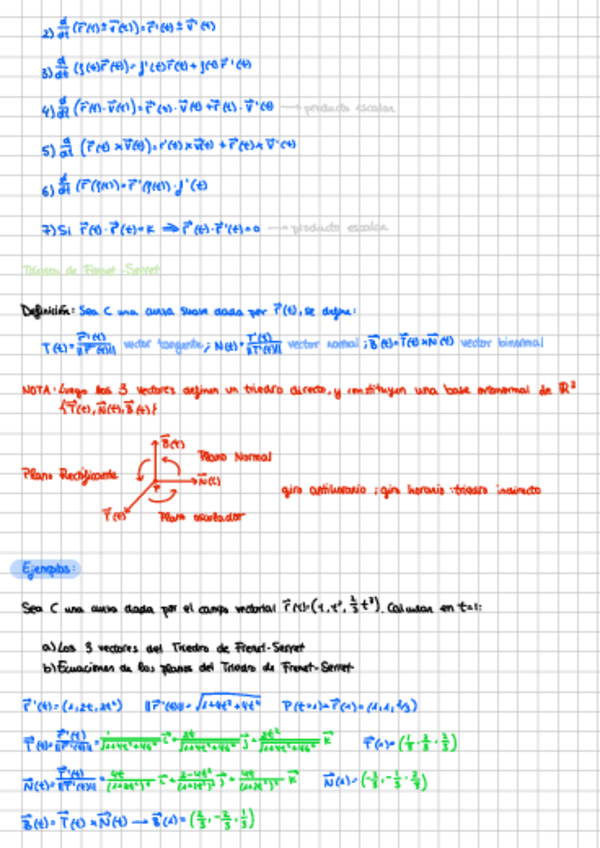 2) d/dt (r⃗(t) ± v⃗(t)) = r⃗'(t) ± v⃗'(t)
3) d/dt (f(t) r⃗(t)) = f'(t) r⃗(t) + f(t) r⃗'(t)
4) d/dt (r⃗(t) · v⃗(t)) = r⃗'(t) · v⃗(t) + r⃗(t) · v⃗'(t) → producto escalar
5) d/dt (r⃗(t) × v⃗(t)) = r'(t) × v⃗(t) + r⃗(t) × v⃗'(t)
6) d/dt (r⃗(f(t))) = r⃗'(f(t)) · f'(t)
7) Si r⃗(t) · r⃗(t) = K ⇒ r⃗(t) · r⃗'(t) = 0 → producto escalar
de Frenet-Serret
Definición: Sea C una curva suave dada por r⃗(t), se define:
T(t) = r⃗'(t)/||r⃗'(t)|| vector tangente; N(t) = T'(t)/||T'(t)|| vector normal; B⃗(t) = T⃗(t) × N⃗(t) vector binormal
NOTA: Luego los 3 vectores definen un triedro directo, y constituyen una base ortonormal de ℝ³
{T⃗(t), N⃗(t), B⃗(t)}
B⃗(t)
Plano Normal
Plano Rectificante
N⃗(t)
P
giro antihorario ; giro horario : triedro indirecto
T⃗(t)
Plano osculador
Ejemplos:
Sea C una curva dada por el campo vectorial r⃗(t) = (t, t², 2/3 t³). Calcular en t=1:
a) Los 3 vectores del Triedro de Frenet-Serret
b) Ecuaciones de los planos del Triedro de Frenet-Serret
r⃗'(t) = (1, 2t, 2t²) ||r⃗'(t)|| = √(1+4t²+4t⁴) P(t=1) = r⃗(1) = (1, 1, 2/3)
T⃗(t) = r⃗'(t)/||r⃗'(t)|| = 1/√(1+4t²+4t⁴) i⃗ + 2t/√(1+4t²+4t⁴) j⃗ + 2t²/√(1+4t²+4t⁴) k⃗ T⃗(1) = (1/3, 2/3, 2/3)
N⃗(t) = T⃗'(t)/||T⃗'(t)|| k⃗ N⃗(1) = (-2/3, -1/3, 2/3)
B⃗(t) = T⃗(t) × N⃗(t) → B⃗(1) = (2/3, -2/3, 1/3)